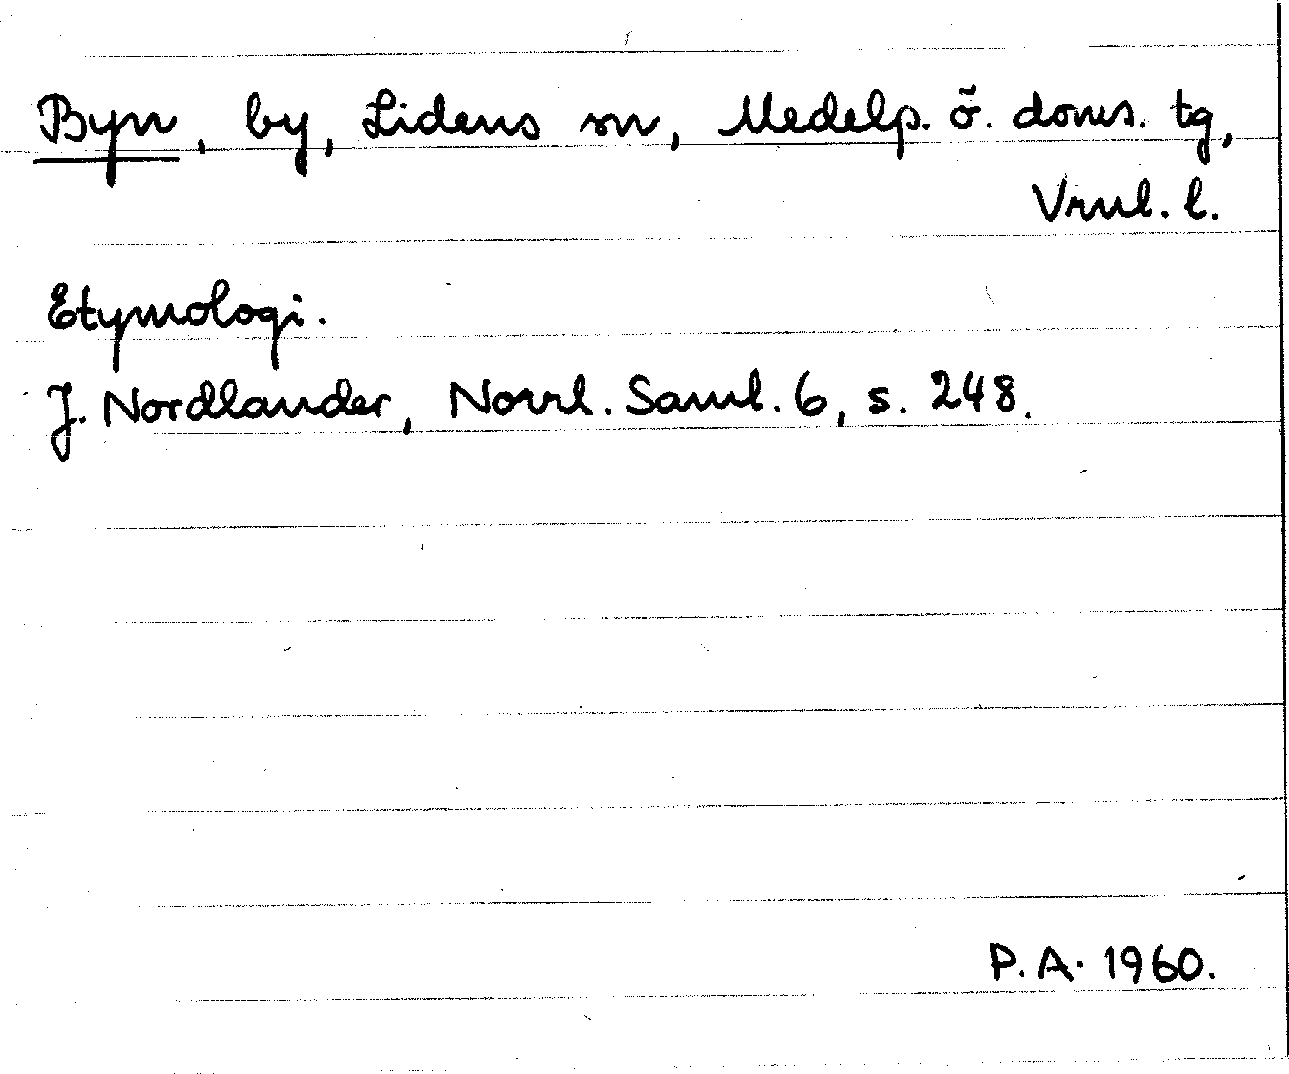 Byn, by, Lidens sn, Medelp. ö. doms. tg,
Vrnl. l.
Etymologi.
J. Nordlander, Norrl. Saml. 6, s. 248.
P. A. 1960.